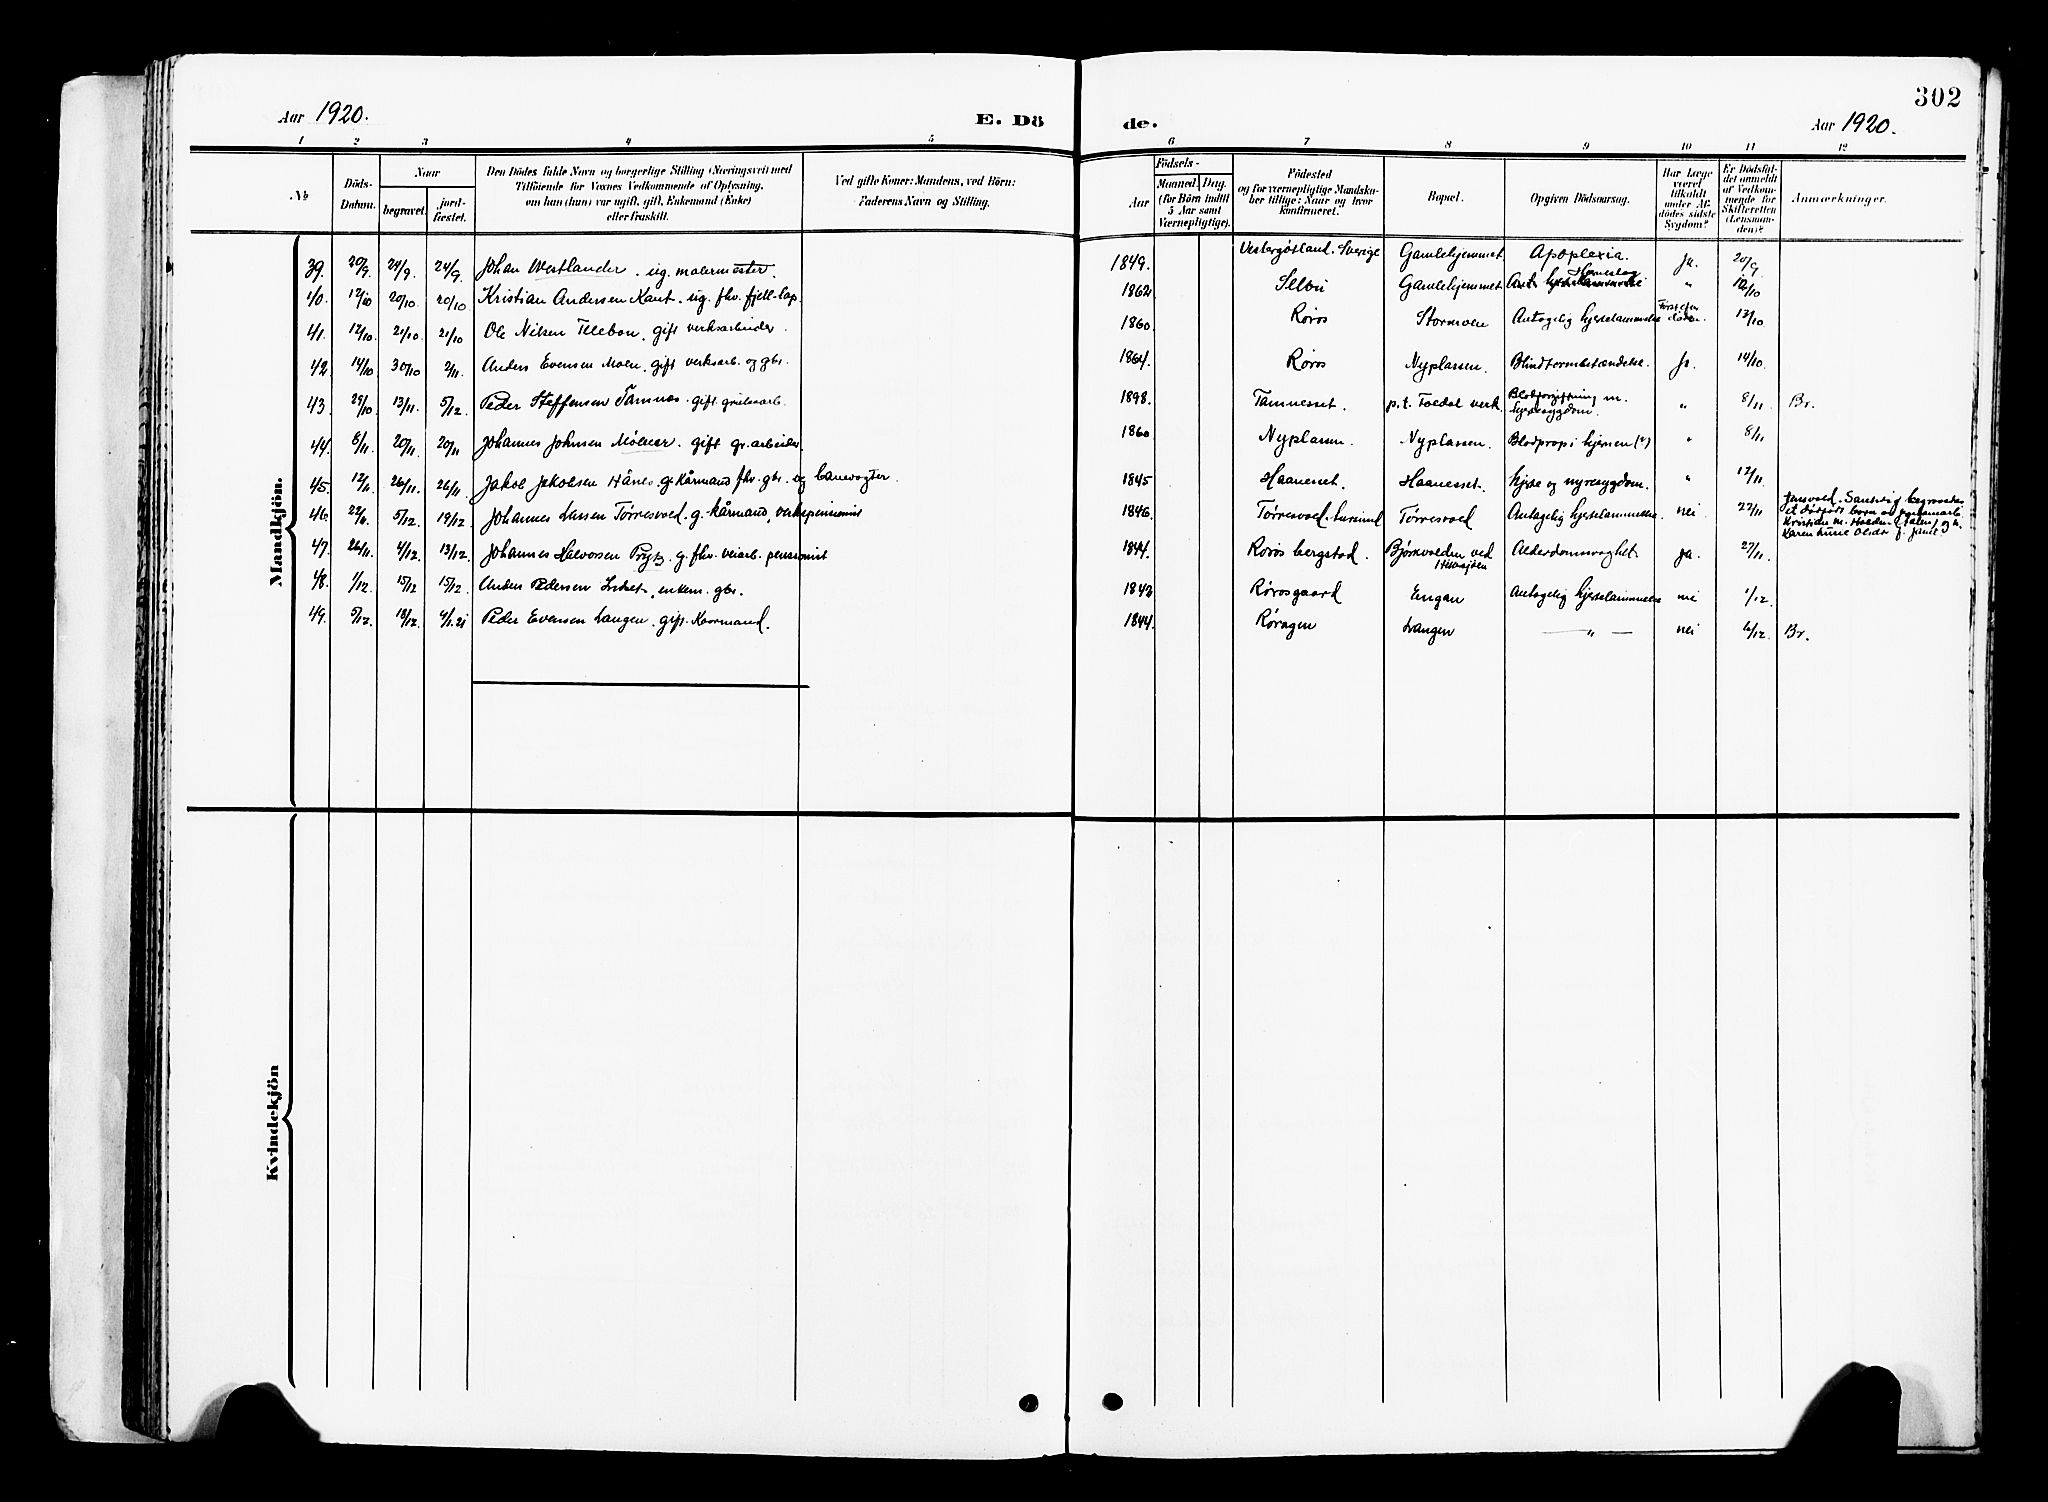 302
Aar 1920.
E. Dö
de.
Aar 1920.
1 2 3 4 5 6 7 8 9 10 11 12
No
Döds-
Datum.
Naar
begravet.
jord-
festet.
Den Dödes fulde Navn og borgerlige Stilling (Næringsvei) med
Tilföiende for Voxnes Vedkommende af Oplysning,
om han (hun) var ugift, gift, Enkemand (Enke)
eller fraskilt.
Ved gifte Koner: Mandens, ved Börn:
Faderens Navn og Stilling.
Födsels-
Aar
Maaned. Dag.
(for Börn indtil
5 Aar samt
Værnepligtige).
Födested
og for værnepligtige Mandska-
ber tillige: Naar og hvor
konfirmeret.
Bopæl.
Opgiven Dödsaarsag.
Har Læge
været
tilkaldt
under Af-
dödes sidste
Sygdom?
Er Dödsfal-
det anmeldt
af Vedkom-
mende for
Skifteretten
(Lensman-
den)?
Anmærkninger.
Mandkjön.
39. 20/9. 24/9. 24/9 Johan Westlander. ug. malermester. 1849. Vestergøtland. Sverige Gamlehjemmet Apoplexia. Ja. 20/9
40. 12/10 20/10 20/10 Kristian Andersen Kant. ug. fhv. fjell-lap. 1862 Selbu Gamlehjemmet Hjerneslag " 12/10
41. 12/10. 21/10. 21/10 Ole Nilsen Tellebon, gift verksarbeider. 1860. Røros Stormoen Antagelig hjertelammelse Først efter døden. 13/10
42 14/10 30/10 2/11. Anders Evensen Moen, gift verksarb. og gbr. 1864. Røros Nyplassen. Blindtarmbetændelse. Ja. 14/10.
43. 29/10 13/11. 5/12. Peder Steffensen Tamnes. gift grubearb. 1898. Tamneset. p.t. Foldal verk. Blodforgiftning m. hjertesygdom. " 8/11 Br.
44. 8/11. 20/11. 20/11 Johannes Johnsen Mølner. gift gr. arbeider 1860 Nyplassen. Nyplassen. Blodprop i hjernen (?) " 8/11
45. 12/11. 26/11. 26/11 Jakob Jakobsen Hånes. g. kårmand fhv. gbr. og banevogter. 1845 Haaneset. Haaneset. hjerte og nyresygdom. " 12/11.
46. 22/11. 5/12. 19/12. Johannes Larsen Tørresvold. g. kårmand, verkspensionist 1846. Tørresvold. Aursund Tørresvold Antagelig hjertelammelse. nei 27/11 Samtidig begravedes et dødfødt barn av
47. 26/11. 4/12. 13/12. Johannes Halvorsen Prytz. g. fhv. veiarb. pensionist 1844. Røros bergstad. Bjørkvolden ved Hittersjøen Alderdomssvaghet ja. 27/11.
48. 1/12. 15/12 15/12. Anders Pedersen enkem. gbr. 1843 Rørosgaard Engan Antagelig hjertelammelse nei 1/12.
49. 5/12. 18/12. 4/1.21 Peder Evensen Langen. gift. Kaarmand. 1844. Røragen Langen — " — nei 6/12. Br.
Kvindekjön